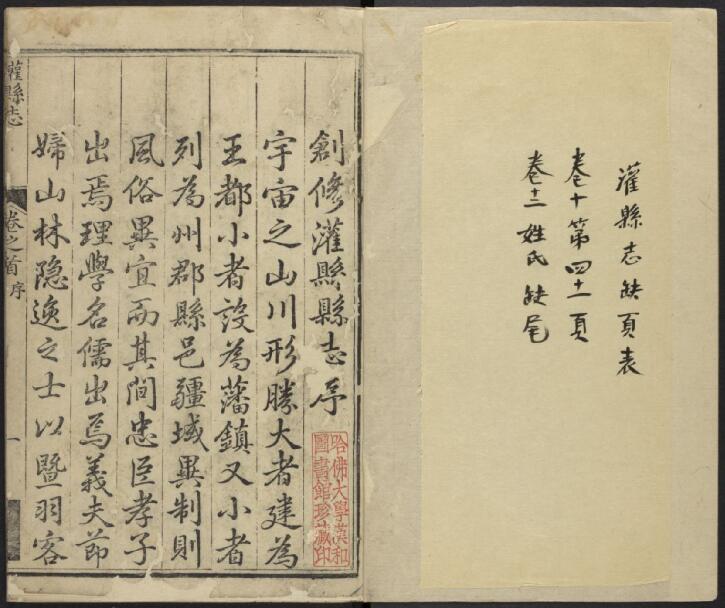 灌縣志缺頁表
卷十第四十一頁
卷十二姓氏缺尾
創修灌縣縣志序
宇宙之山川形勝大者建為
王都小者設為藩鎮又小者
列為州郡縣邑疆域異制則
風俗異宜而其間忠臣孝子
出焉理學名儒出焉義夫節
婦山林隐逸之士以暨羽客
哈佛大學漢和
圖書館珍藏印
灌縣志
卷之首
序
一